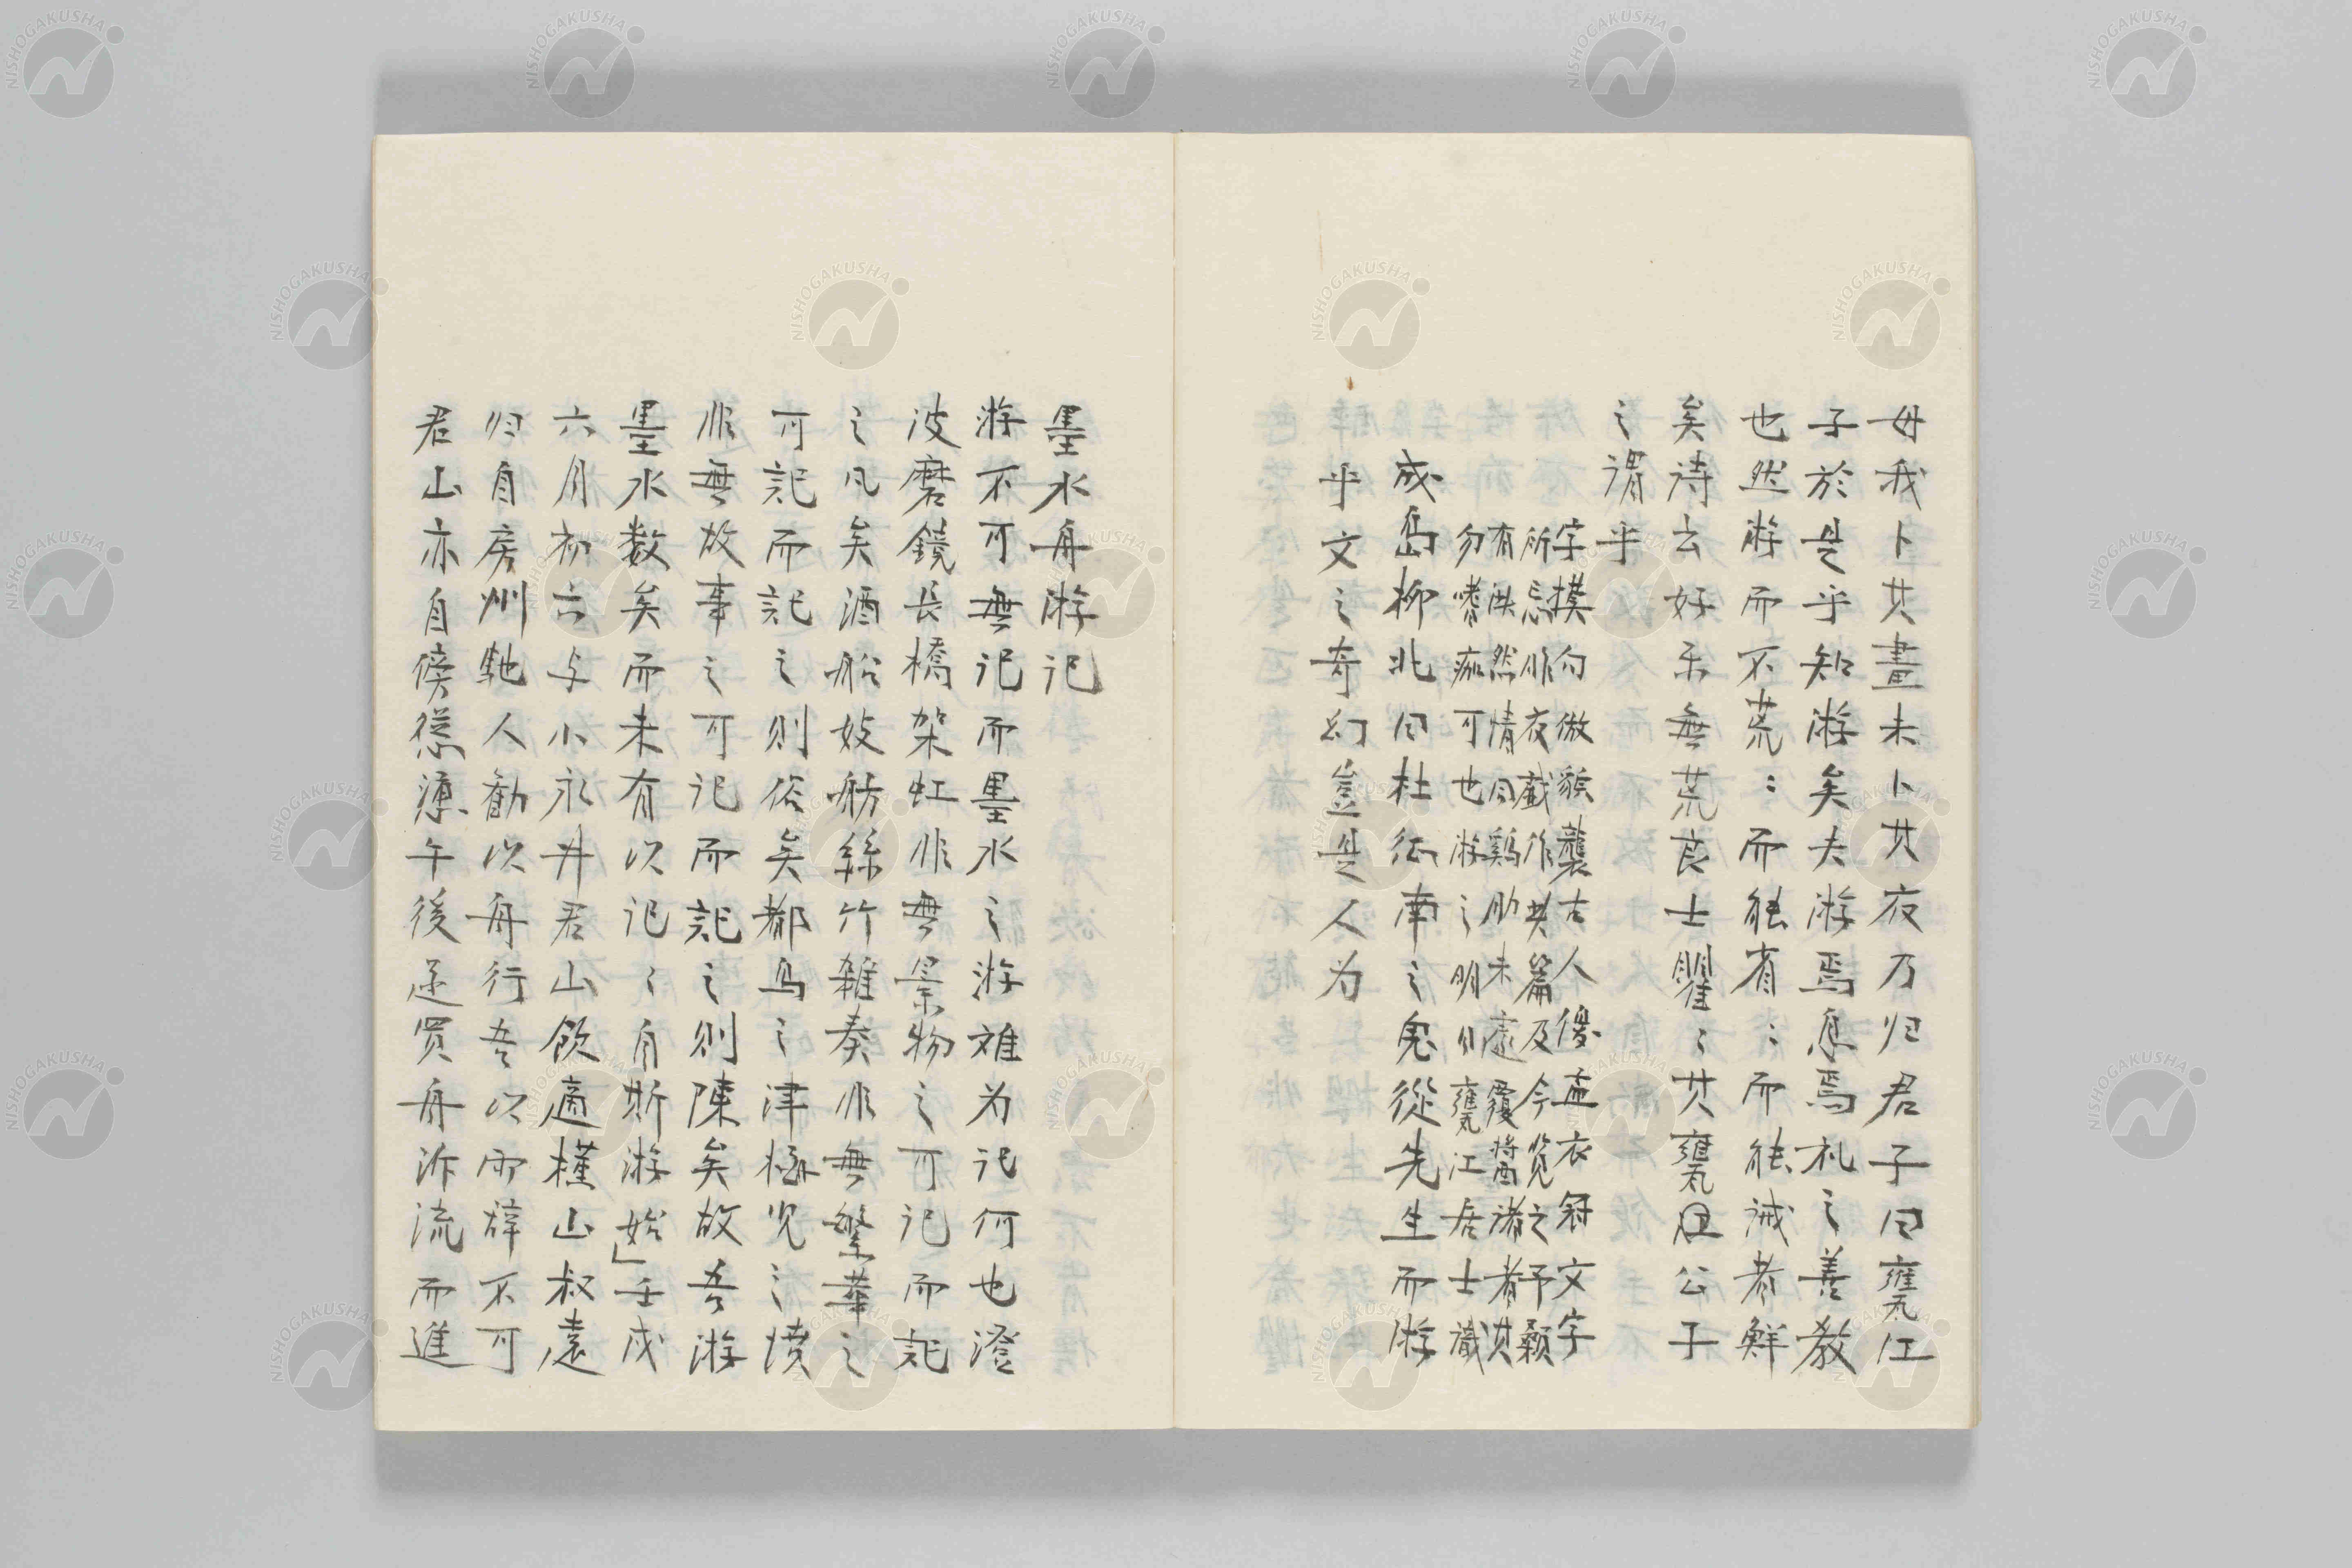 毋我卜其晝未卜其夜乃归君子曰甕江
子於是乎知游矣夫游焉息焉礼之善教
也然游而不荒〻而能有〻而能誡者鮮
矣詩云好乐無荒良士瞿〻其甕江公子
之謂乎
字摸句倣貌襲古人優孟衣冠文字
所忌非夜戯作其篇及今覧之予顙
有泚然情同鷄肋未遽覆醬諸者其
勿嗜痂可也游之明月甕江居士識
成島柳北曰杜征南之鬼從先生而游
乎文之奇幻豈是人为
墨水舟游记
游不可無记而墨水之游难为记何也澄
波磨鏡長橋架虹非無景物之可记而記
之凡矣酒船妓舫絲竹雑奏非無繁華之
可記而記之則俗矣都鳥之津梅児之墳
非無故事之可记而記之則陳矣故吾游
墨水数矣而未有以记〻自斯游始」壬戌
六月初六与小永井君山飲適槿山叔遠
归自房州馳人勸以舟行吾以雨辞不可
君山亦自傍慫慂午後遂買舟泝流而進
NISHOGAKUSHA